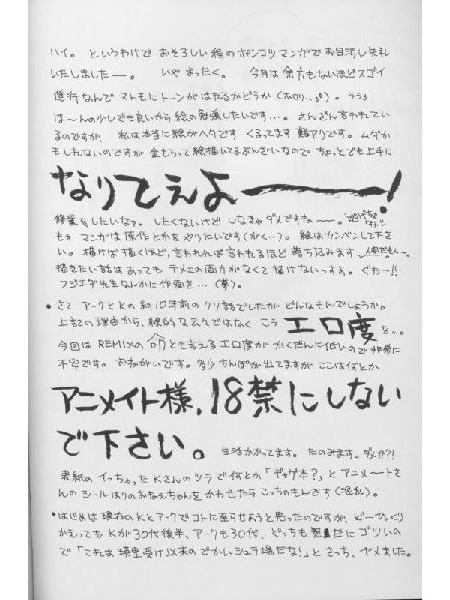 ハイ。というわけで おそろしい絵のポンコツマンガでお目汚し失礼
いたしましたー。 いやまったく。 今月は余力もないほどスゴイ
進行なんで マトモにトーンが はれるかどうか
はーんの少しでも良いから絵の勉強したいです…。さんざん言われてい
るのですが、私は本当に絵がヘタです くるってます
かもしれないのですが 金もらって絵描いてるぶんざいなので ちょっとでも上手に
なりてえよーーー!
修業をしたいなァ。したくないけど しなきゃダメですねー。
もォ マンガは原作とかをやりたいです 絵はカンベンして下さ
い。描けば描くほど、言われれば言われるほど 落ち込みます
描きたい話はあっても テメエの画力がなくて描けないっすよ。ぐわー!!
フジエダ先生なんかに作画を…(夢)。
•さて アークとKの約10年前のクソ話でしたが どんなもんでしょうか。
上記の理由から、絵的な云々ではなく こう エロ度を…。
今回は REMIXの とも言えるエロ度が かくだんに低いので非常に
不安です。おねがいです。多少ちんぽが出てますが ここは何とか
アニメイト様、18禁にしない
で下さい。 生活かかってます。たのみます。ダメか?!
表紙のイっちゃったKさんのツラで何とか「ギャグ本?」と アニメートさ
んのシールはりのおねえちゃんを かわせたら こっちのもんです
•はじめは現在のKとアークでコトに至らせようと思ったのですが、どーひっくり
かえっても Kが30代後半、アークも30代、どっちも ゴツいの
で「これは 以来のでかいシュラ場だな!」と さっち、ヤメました。